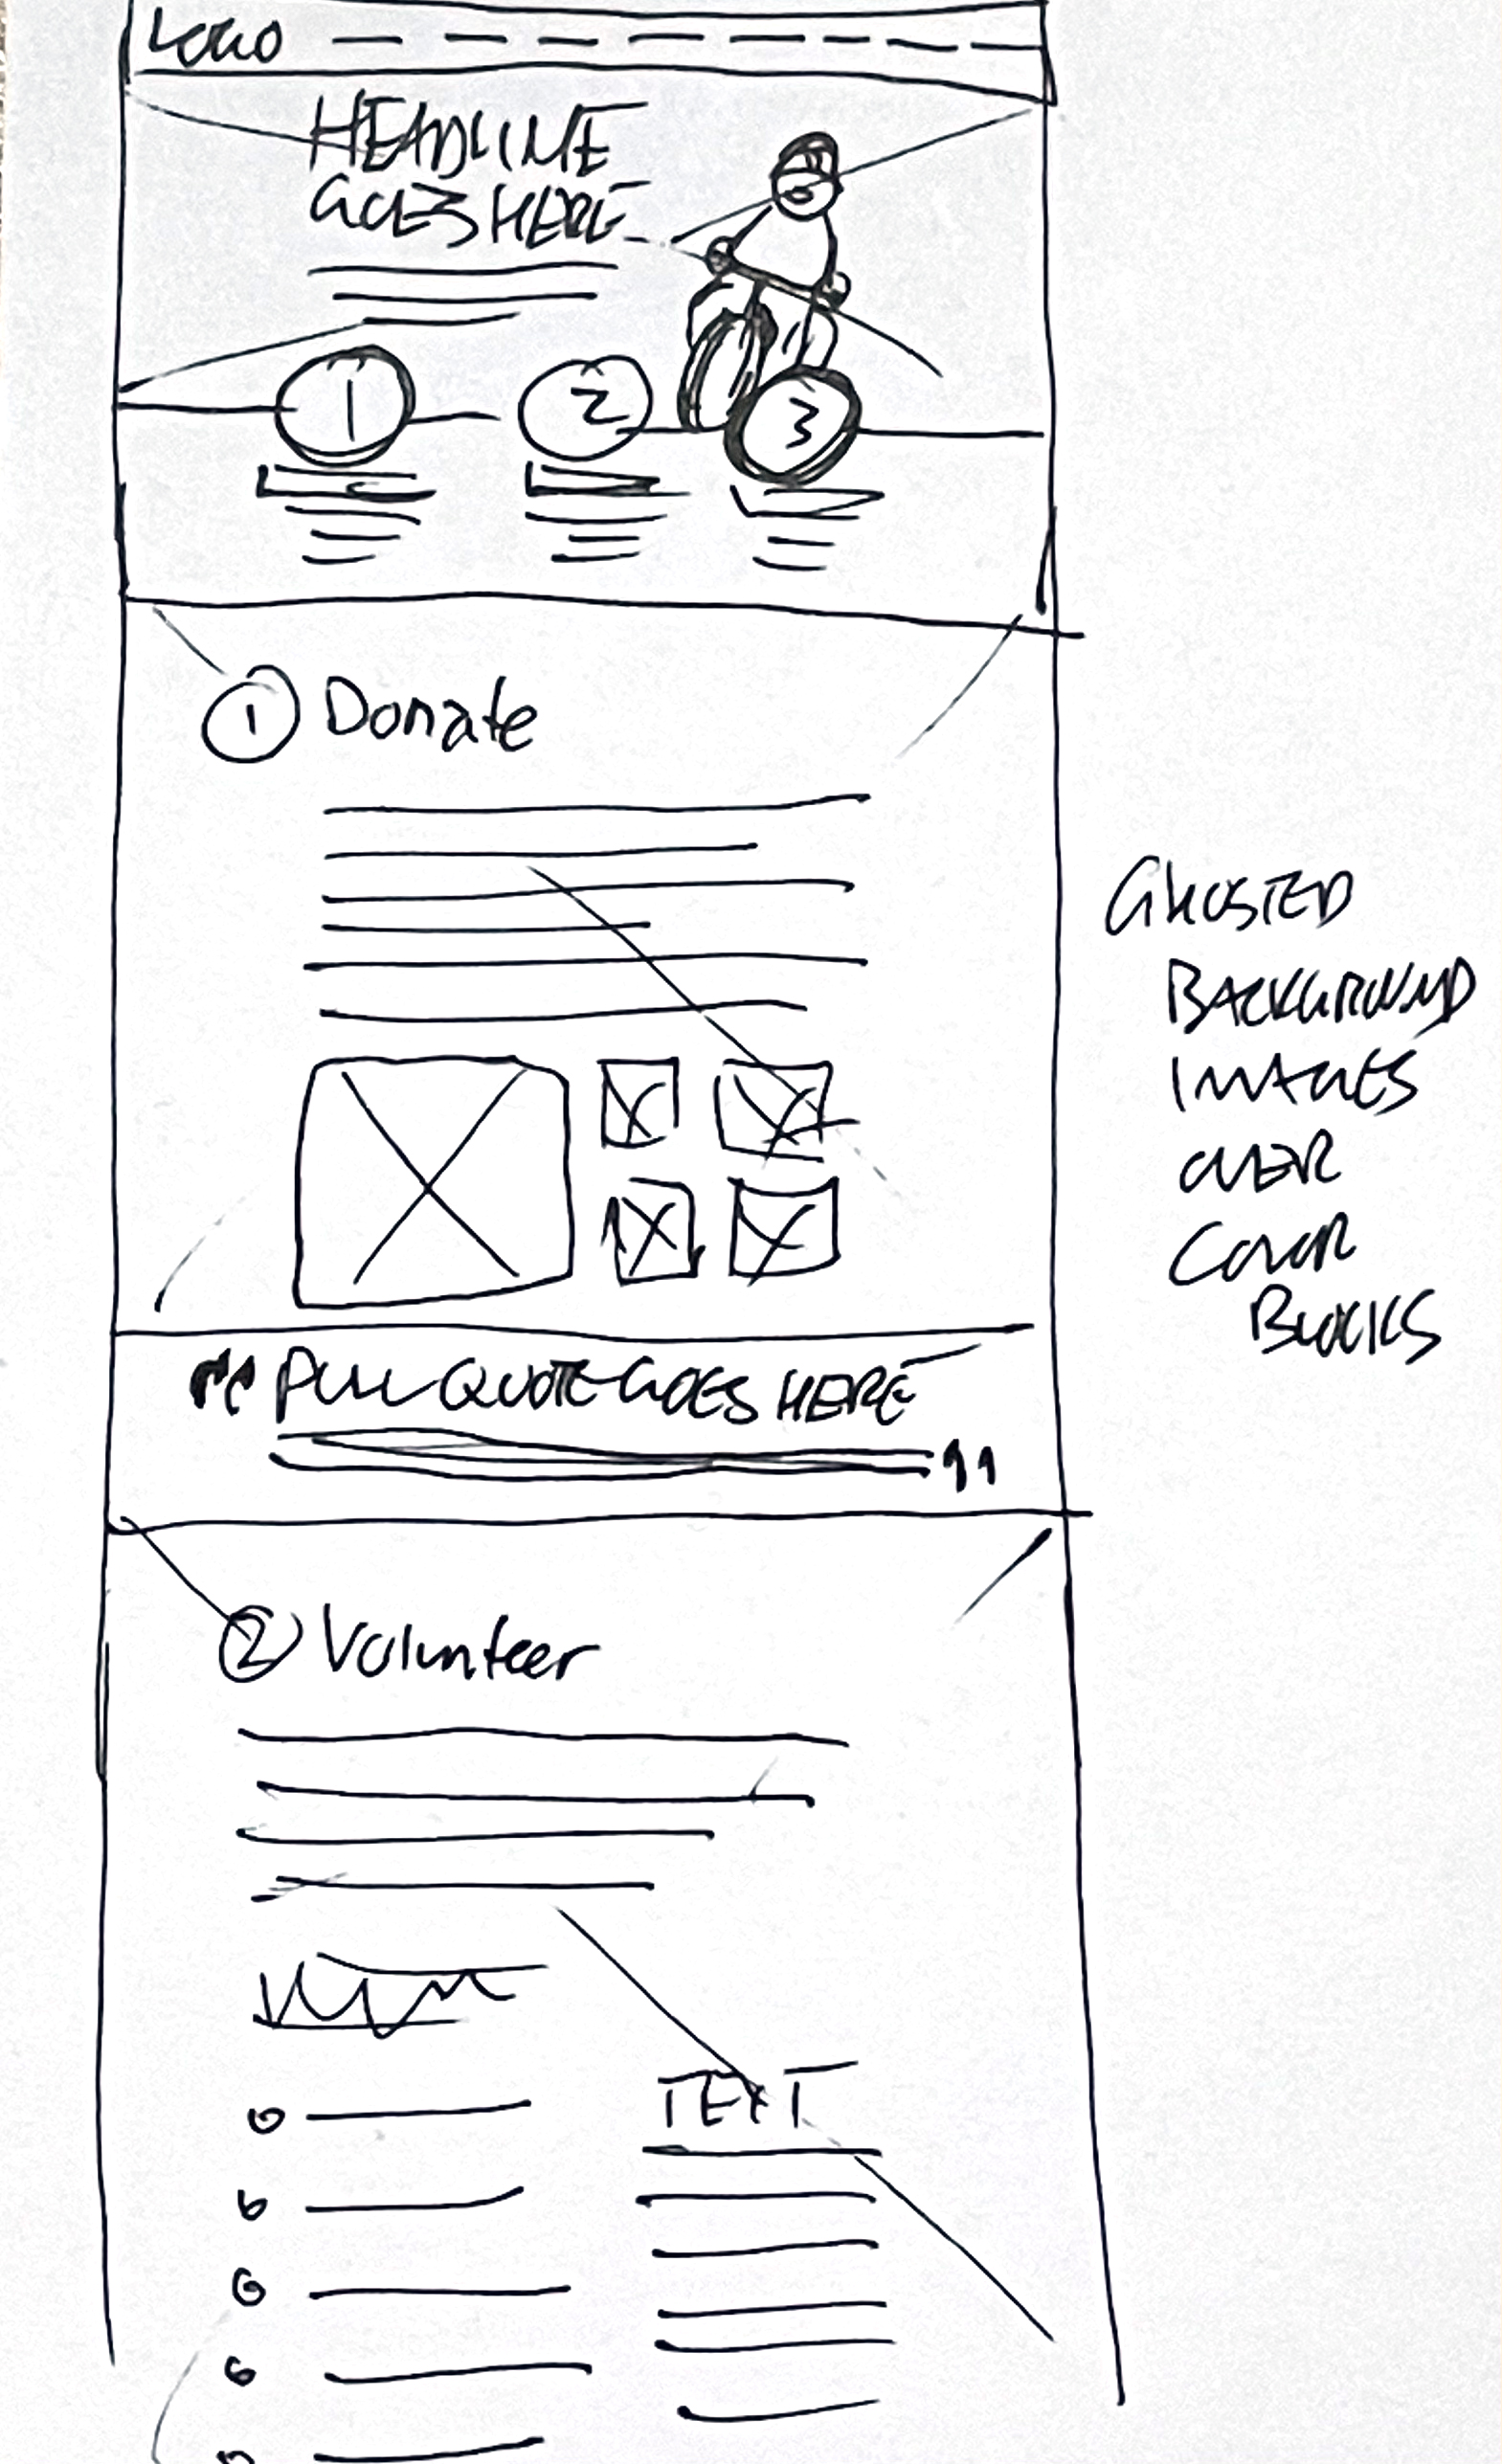 LOGO
HEADLINE
GOES HERE
1
2
3
1 Donate
GHOSTED
BACKGROUND
IMAGES
OVER
COLOR
BLOCKS
“ PULL QUOTE GOES HERE
”
2 Volunteer
TEXT